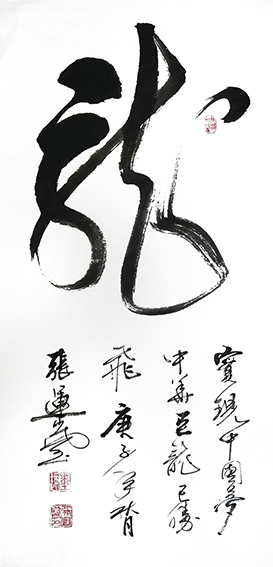 龍
實現中國夢
中華巨龍已騰
飛 庚子年
張運